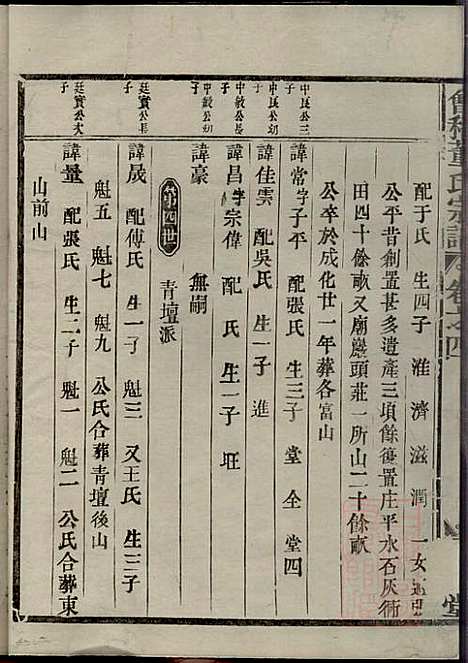 會稽董氏宗譜
卷之四
堂
配于氏 生四子 淮 濟 滋 潤 一女
公平昔創置甚多遺產三項餘復置庄平水石灰衖
田四十餘畝又廟巖頭莊一所山二十餘畝
公卒於成化廿一年葬各富山
中良公三子
諱常字子平 配張氏 生三子 堂 仝 堂四
中良公幼子
諱佳雲 配吳氏 生一子 進
中敏公子
諱昌字宗偉 配 氏 生一子 旺
中毅公幼子
諱豪 無嗣
第四世 青壇派
廷實公長子
諱晟 配傅氏 生一子 魁三 又王氏 生三子
魁五 魁七 魁九 公氏合葬青壇後山
廷實公次子
諱量 配張氏 生二子 魁一 魁二 公氏合葬東
山前山